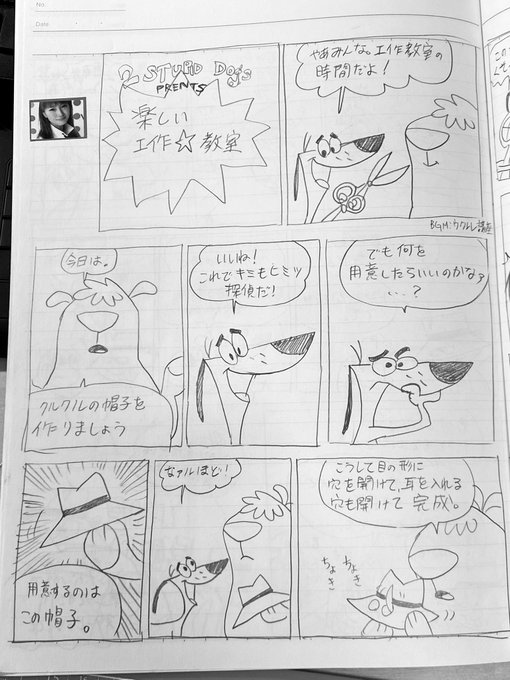 No.
Date
2 STUPID DOGS
PRENTS
楽しい
工作☆教室
やあみんな。工作教室の
時間だよ!
今日は。
クルクルの帽子を
作りましょう
いいね!
これでキミもヒミツ
探偵だ!
でも何を
用意したらいいのかなァ
...?
用意するのは
この帽子。
なァルほど!
こうして目の形に
穴を開けて、耳を入れる
穴も開けて完成。
ちょき
ちょき